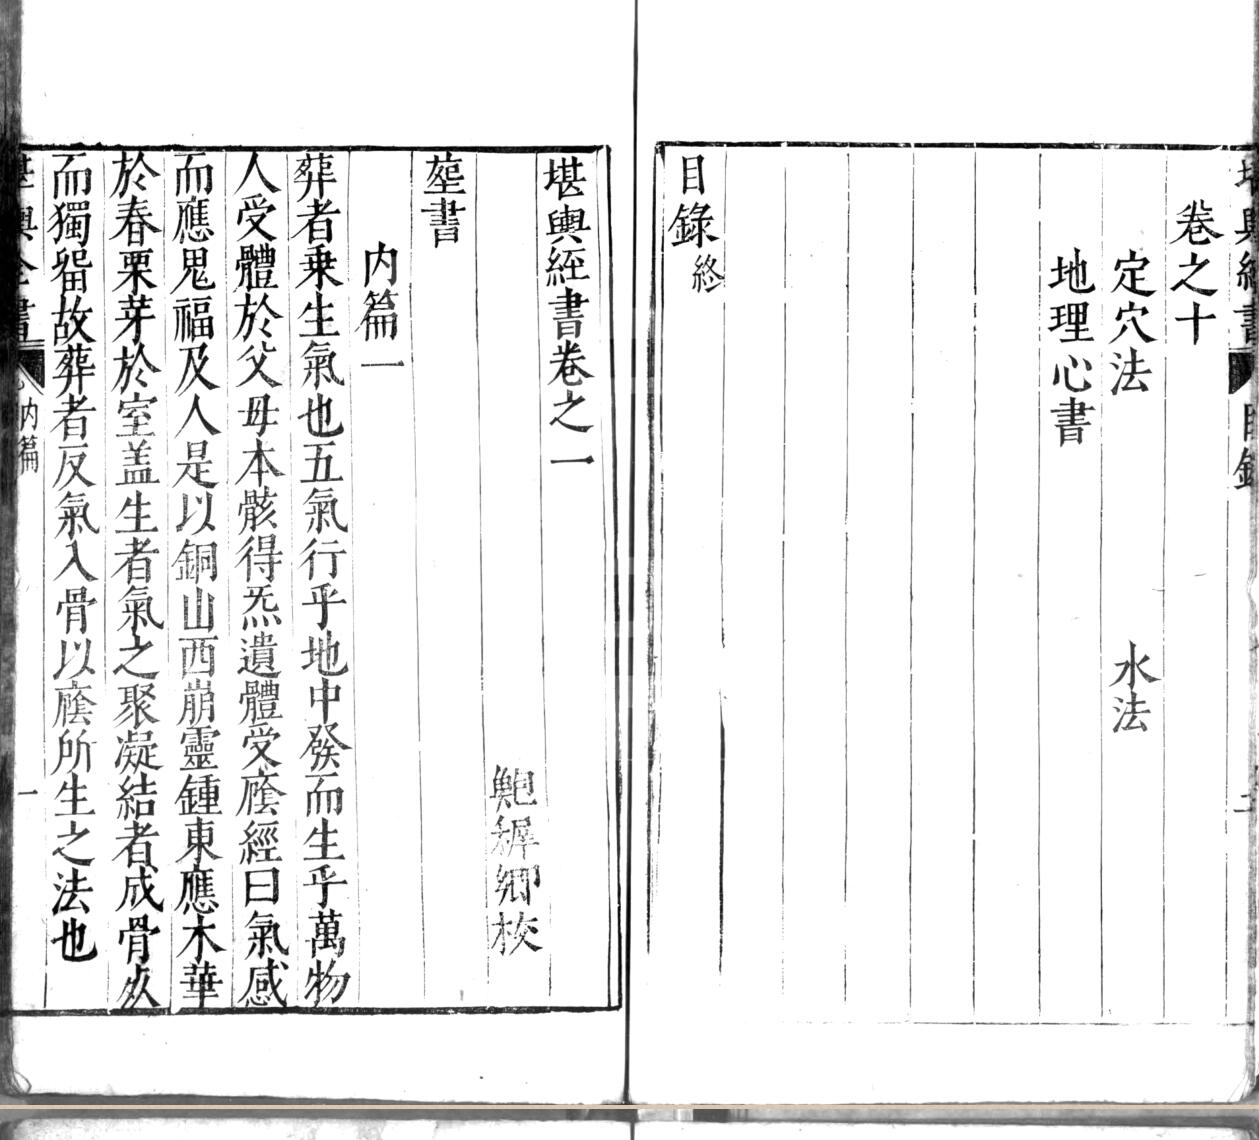 卷之十
定穴法 水法
地理心書
目錄終
堪輿經書卷之一
鮑穉卿校
塟書
内篇一
葬者乘生氣也五氣行乎地中發而生乎萬物
人受體於父母本骸得炁遺體受廕經曰氣感
而應鬼福及人是以銅山西崩靈鍾東應木華
於春栗芽於室盖生者氣之聚凝結者成骨𣦸
而獨畱故葬者反氣入骨以廕所生之法也
内篇
一